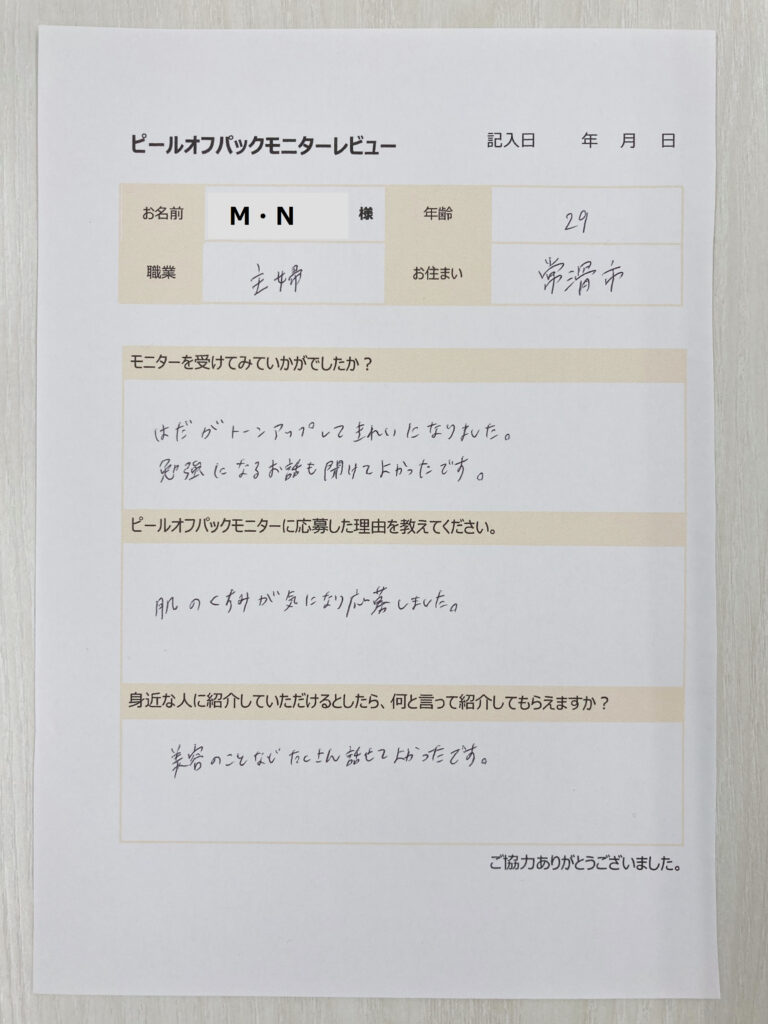 ピールオフパックモニターレビュー 記入日 年 月 日
お名前 M・N 様 年齢 29
職業 主婦 お住まい 常滑市
モニターを受けてみていかがでしたか？
はだがトーンアップしてきれいになりました。
勉強になるお話も聞けてよかったです。
ピールオフパックモニターに応募した理由を教えてください。
肌のくすみが気になり応募しました。
身近な人に紹介していただけるとしたら、何と言って紹介してもらえますか？
美容のことなどたくさん話せてよかったです。
ご協力ありがとうございました。